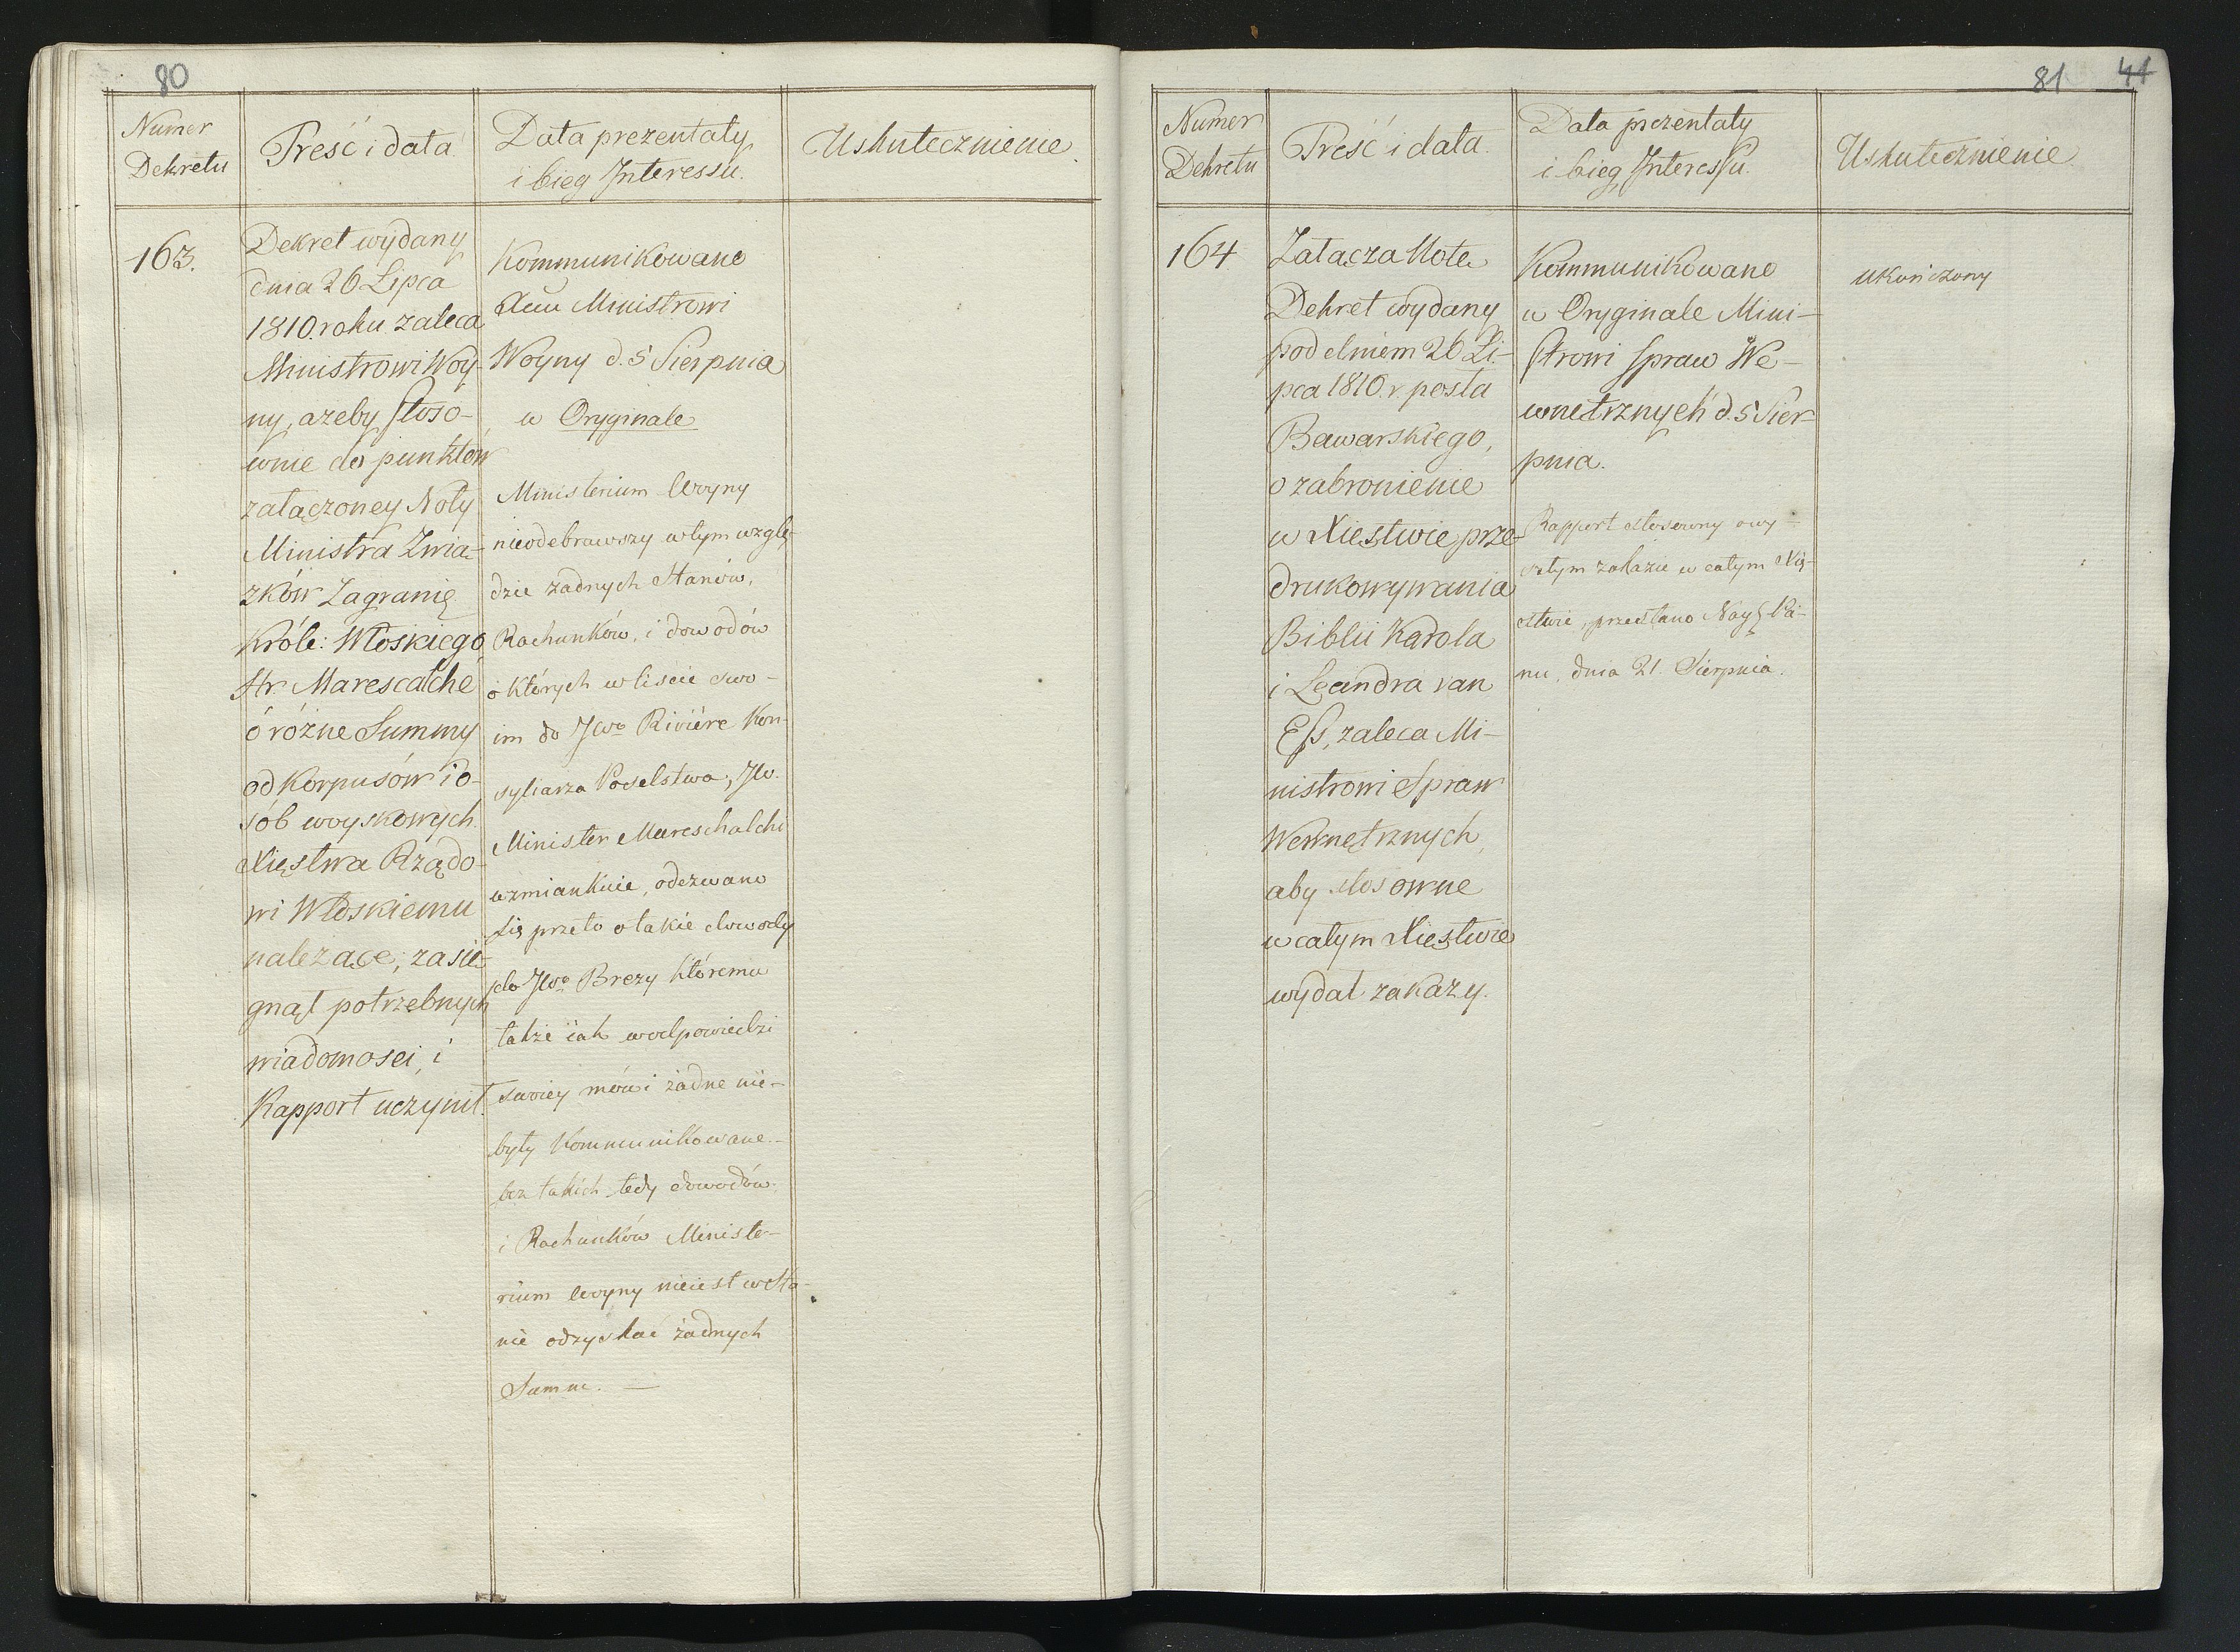 80
Numer
Dekretu
Treść i data
Data prezentaty
i bieg Interessu.
Uskutecznienie.
163.
Dekret wydany
dnia 26 Lipca
1810. roku zaleca
Ministrowi Woy-
ny, ażeby stoso-
wnie do punktow
załączoney Noty
Ministra Zwią-
zków Zagranię
Króle: Włoskiego
Hr Marescalche
o różne Summy
od Korpusów i o-
sób woyskowych
Xięstwa Rządo-
wi Włoskiemu
należące, zasię-
gnął potrzebnych
wiadomosci, i
Rapport uczynił.
Kommunikowane
Ministrowi
Woyny d. 5 Sierpnia
w Oryginale
Ministerium Woyny
nieodebrawszy w tym wzglę-
dzie żadnych Stanów,
Rachunków, i dowodów
o których w liscie swo-
im do JWo Riviére Kon-
syliarza Poselstwa, JW.
Minister Mareschalchi
wzmiankuie, odezwano
się przeto o takie dowody
do JWo Brezy któremu
także iak w odpowiedzi
swoiey mówi żadne nie-
były Kommunikowane.-
bez takich tedy dowodów
i Rachunków Ministe-
rium Woyny nieiest w Sta-
nie odzyskać żadnych
Summ. —
81 41
Numer
Dekretu
Treść i data.
Data prezentaty
i bieg Interessu.
Uskutecznienie
164
Załącza Notę
Dekret wydany
pod dniem 26 Li-
pca 1810. r. posła
Bawarskiego,
o zabronienie
w Xięstwie prze-
drukowywania
Biblii Karola
i Leandra van
Eſs, zaleca Mi-
nistrowi Spraw
Wewnętrznych,
aby stosowne
w całym Xięstwie
wydał zakazy.
Kommunikowane
w Oryginale Mini-
strowi spraw We-
wnętrznych d. 5 Sier-
pnia.
Rapport stosowny o wy-
szłym zakazie w całym Xię-
stwie, przesłano Nayś. Pa-
nu, dnia 21. Sierpnia.
ukończony